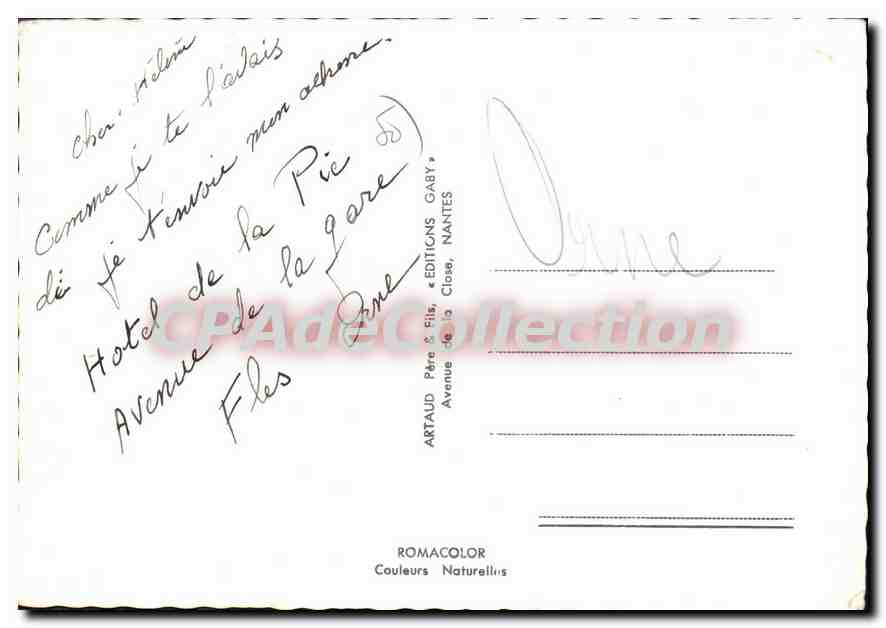 cher. Hélène
Comme je te l'avais
di je t'envoie mon
Hotel de la Pie
Avenue de la gare
Fles Orne
50
Orne
ARTAUD Père & Fils, « EDITIONS GABY »
Avenue de la Close, NANTES
ROMACOLOR
Couleurs Naturelles
CPAdeCollection